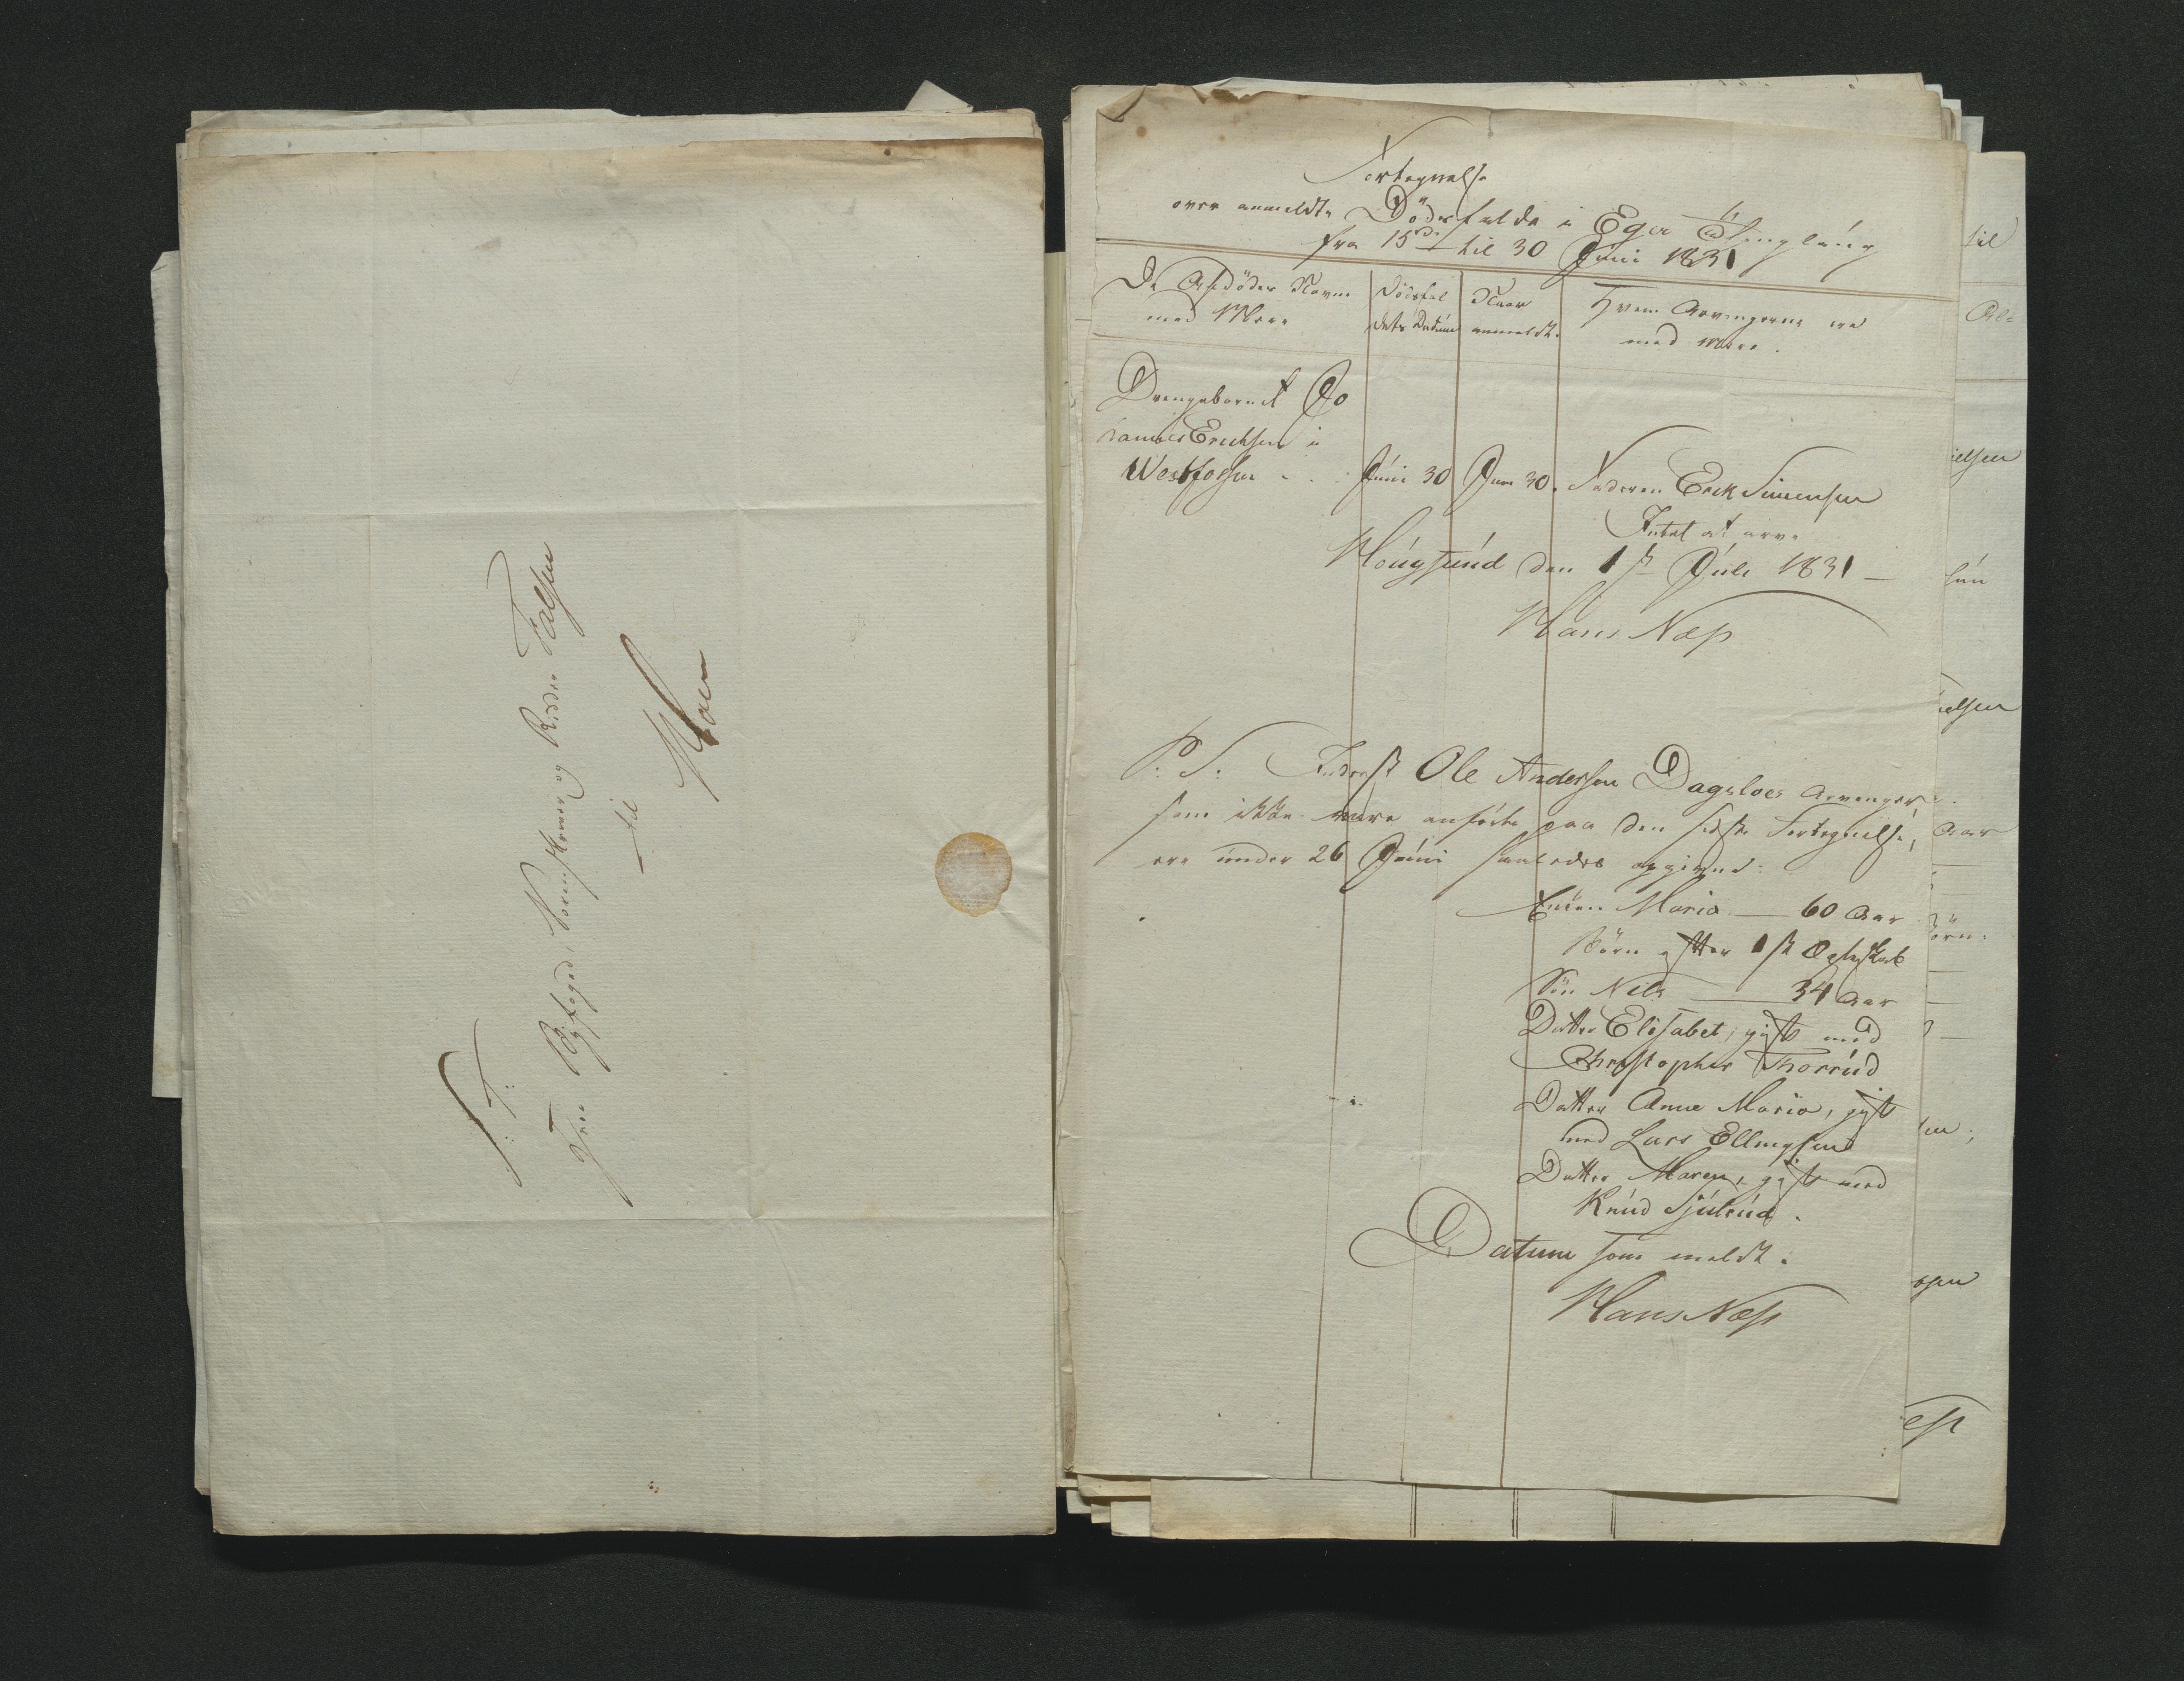 S: T:
Herr Byfoged, Sorenskriver og Ridder Falsen
til
Moen
Fortegnelse
over anmeldte Dödsfalde i Eger Thinglaug
fra 15de til 30 Juni 1831
De Afdödes Navne
med Mere
Dödsfal
dets Datum
Naar
anmeldt.
Hvem Arvingerne ere
med mere.
Drengebarnet Jo
hannes Erichsen i
Westfossen - . . Juni 30 Juni 30. Faderen Erek Simensen
Intet at arve
Hougsund den 1ste Juli 1831 —
Hans Næss
P: S: Inderst Ole Anderssen Dagsloes Arvinger
som ikke vare anförte paa den sidste Fortegnelse,
ere under 26 Juni saaledes opgivne:
Enken Maria — 60 Aar
Börn efter 1ste Ægteskab
Sön Nels — 34 Aar
Datter Elisabet, gift med
Christopher Thorrud
Datter Anne Maria, gift
med Lars Ellingsen
Datter Maren, gift med
Knud
Datum som meldt.
Hans Næss
til
Aar